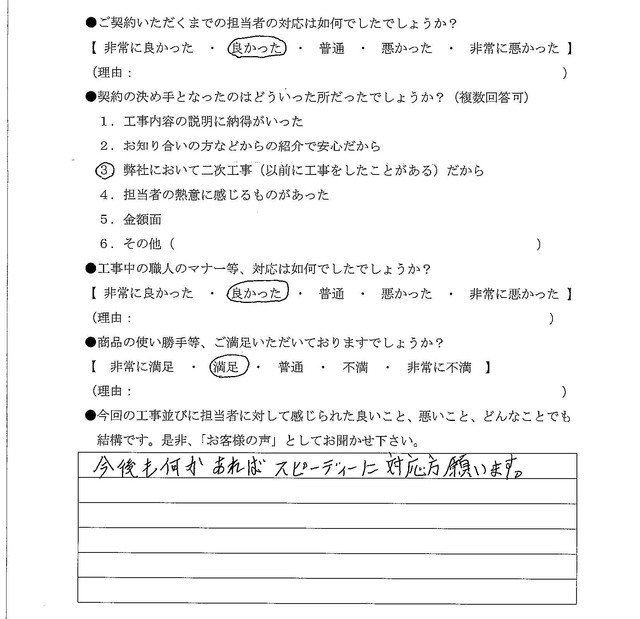 ●ご契約いただくまでの担当者の対応は如何でしたでしょうか？
【 非常に良かった ・ 良かった ・ 普通 ・ 悪かった ・ 非常に悪かった 】
（理由： ）
●契約の決め手となったのはどういった所だったでしょうか？（複数回答可）
１．工事内容の説明に納得がいった
２．お知り合いの方などからの紹介で安心だから
３ 弊社において二次工事（以前に工事をしたことがある）だから
４．担当者の熱意に感じるものがあった
５．金額面
６．その他（ ）
●工事中の職人のマナー等、対応は如何でしたでしょうか？
【 非常に良かった ・ 良かった ・ 普通 ・ 悪かった ・ 非常に悪かった 】
（理由： ）
●商品の使い勝手等、ご満足いただいておりますでしょうか？
【 非常に満足 ・ 満足 ・ 普通 ・ 不満 ・ 非常に不満 】
（理由： ）
●今回の工事並びに担当者に対して感じられた良いこと、悪いこと、どんなことでも
結構です。是非、「お客様の声」としてお聞かせ下さい。
今後も何かあればスピーディーに対応方願います。